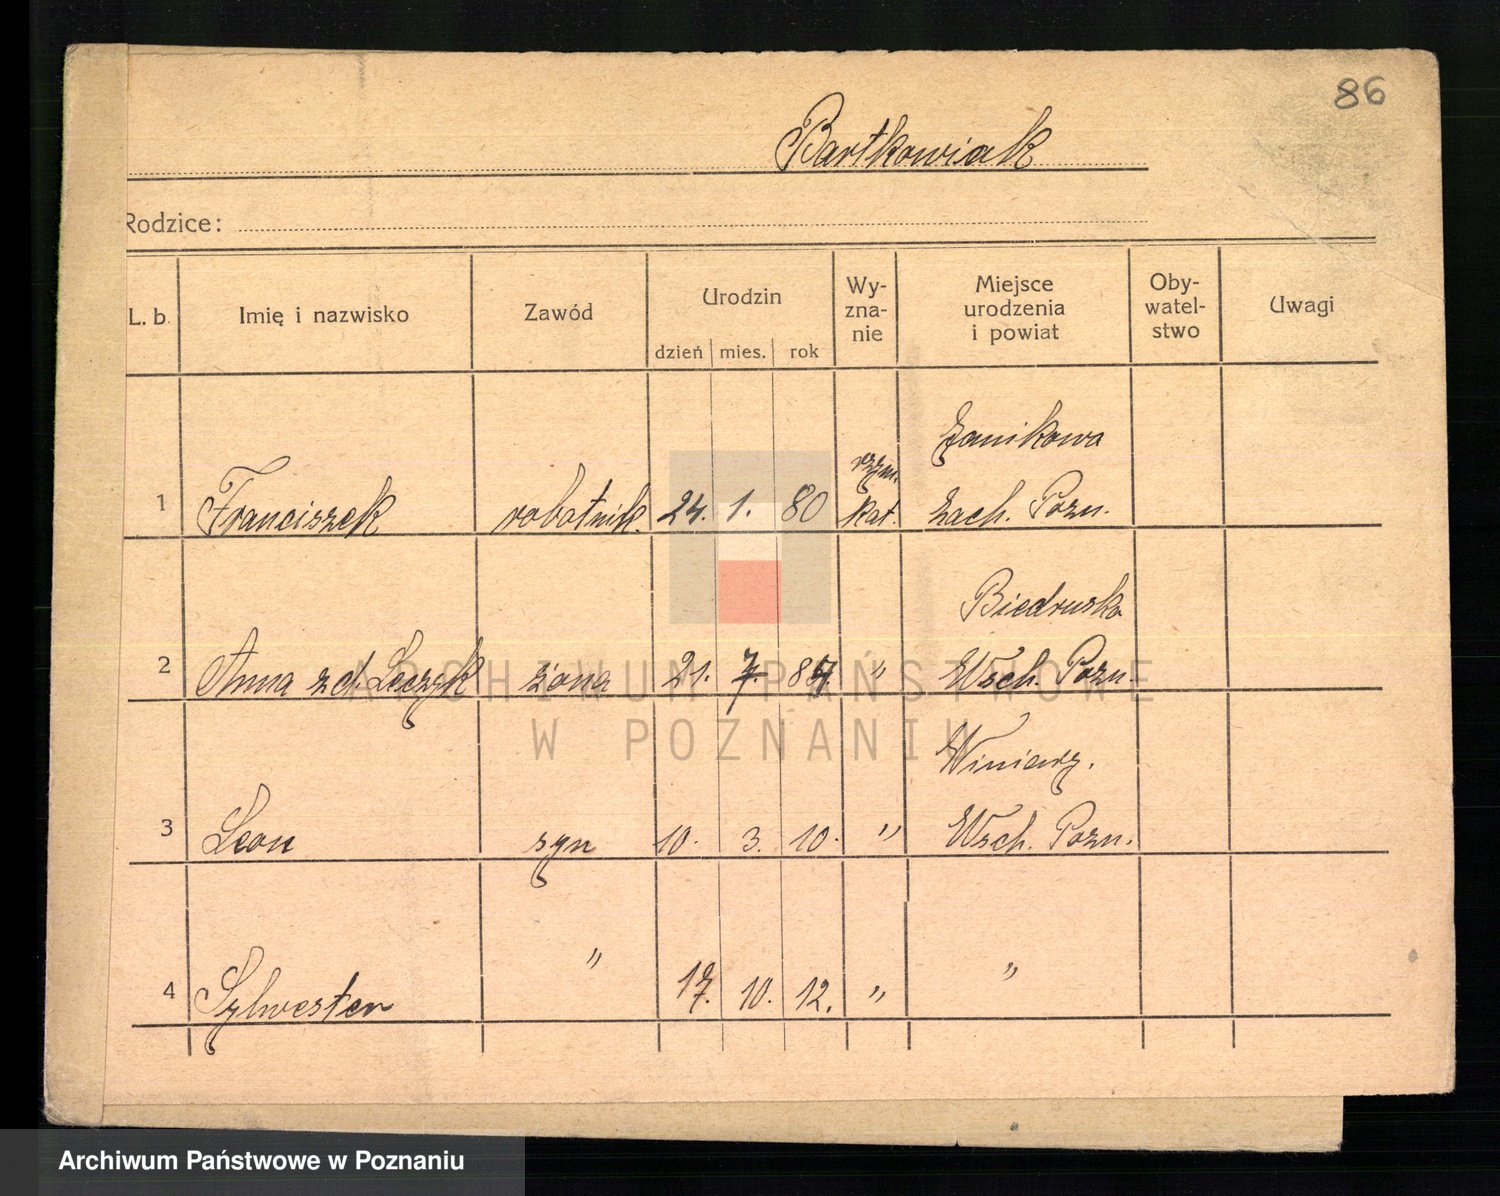 86
Bartkowiak
Rodzice:
L. b. Imię i nazwisko Zawód Urodzin Wy- zna- nie Miejsce urodzenia i powiat Oby- watel- stwo Uwagi
dzień mies. rok
1 Franciszek robotnik. 24. 1. 80 rzym. kat. Żanikowa Zach. Pozn.
2 Anna z d. Leczyk żona 21. 7. 84 " Biedrusko Wsch. Pozn.
3 Leon syn 10. 3. 10. " Winiary. Wsch. Pozn.
4 Sylwester " 17. 10. 12. " "
ARCHIWUM PAŃSTWOWE
W POZNANIU
Archiwum Państwowe w Poznaniu